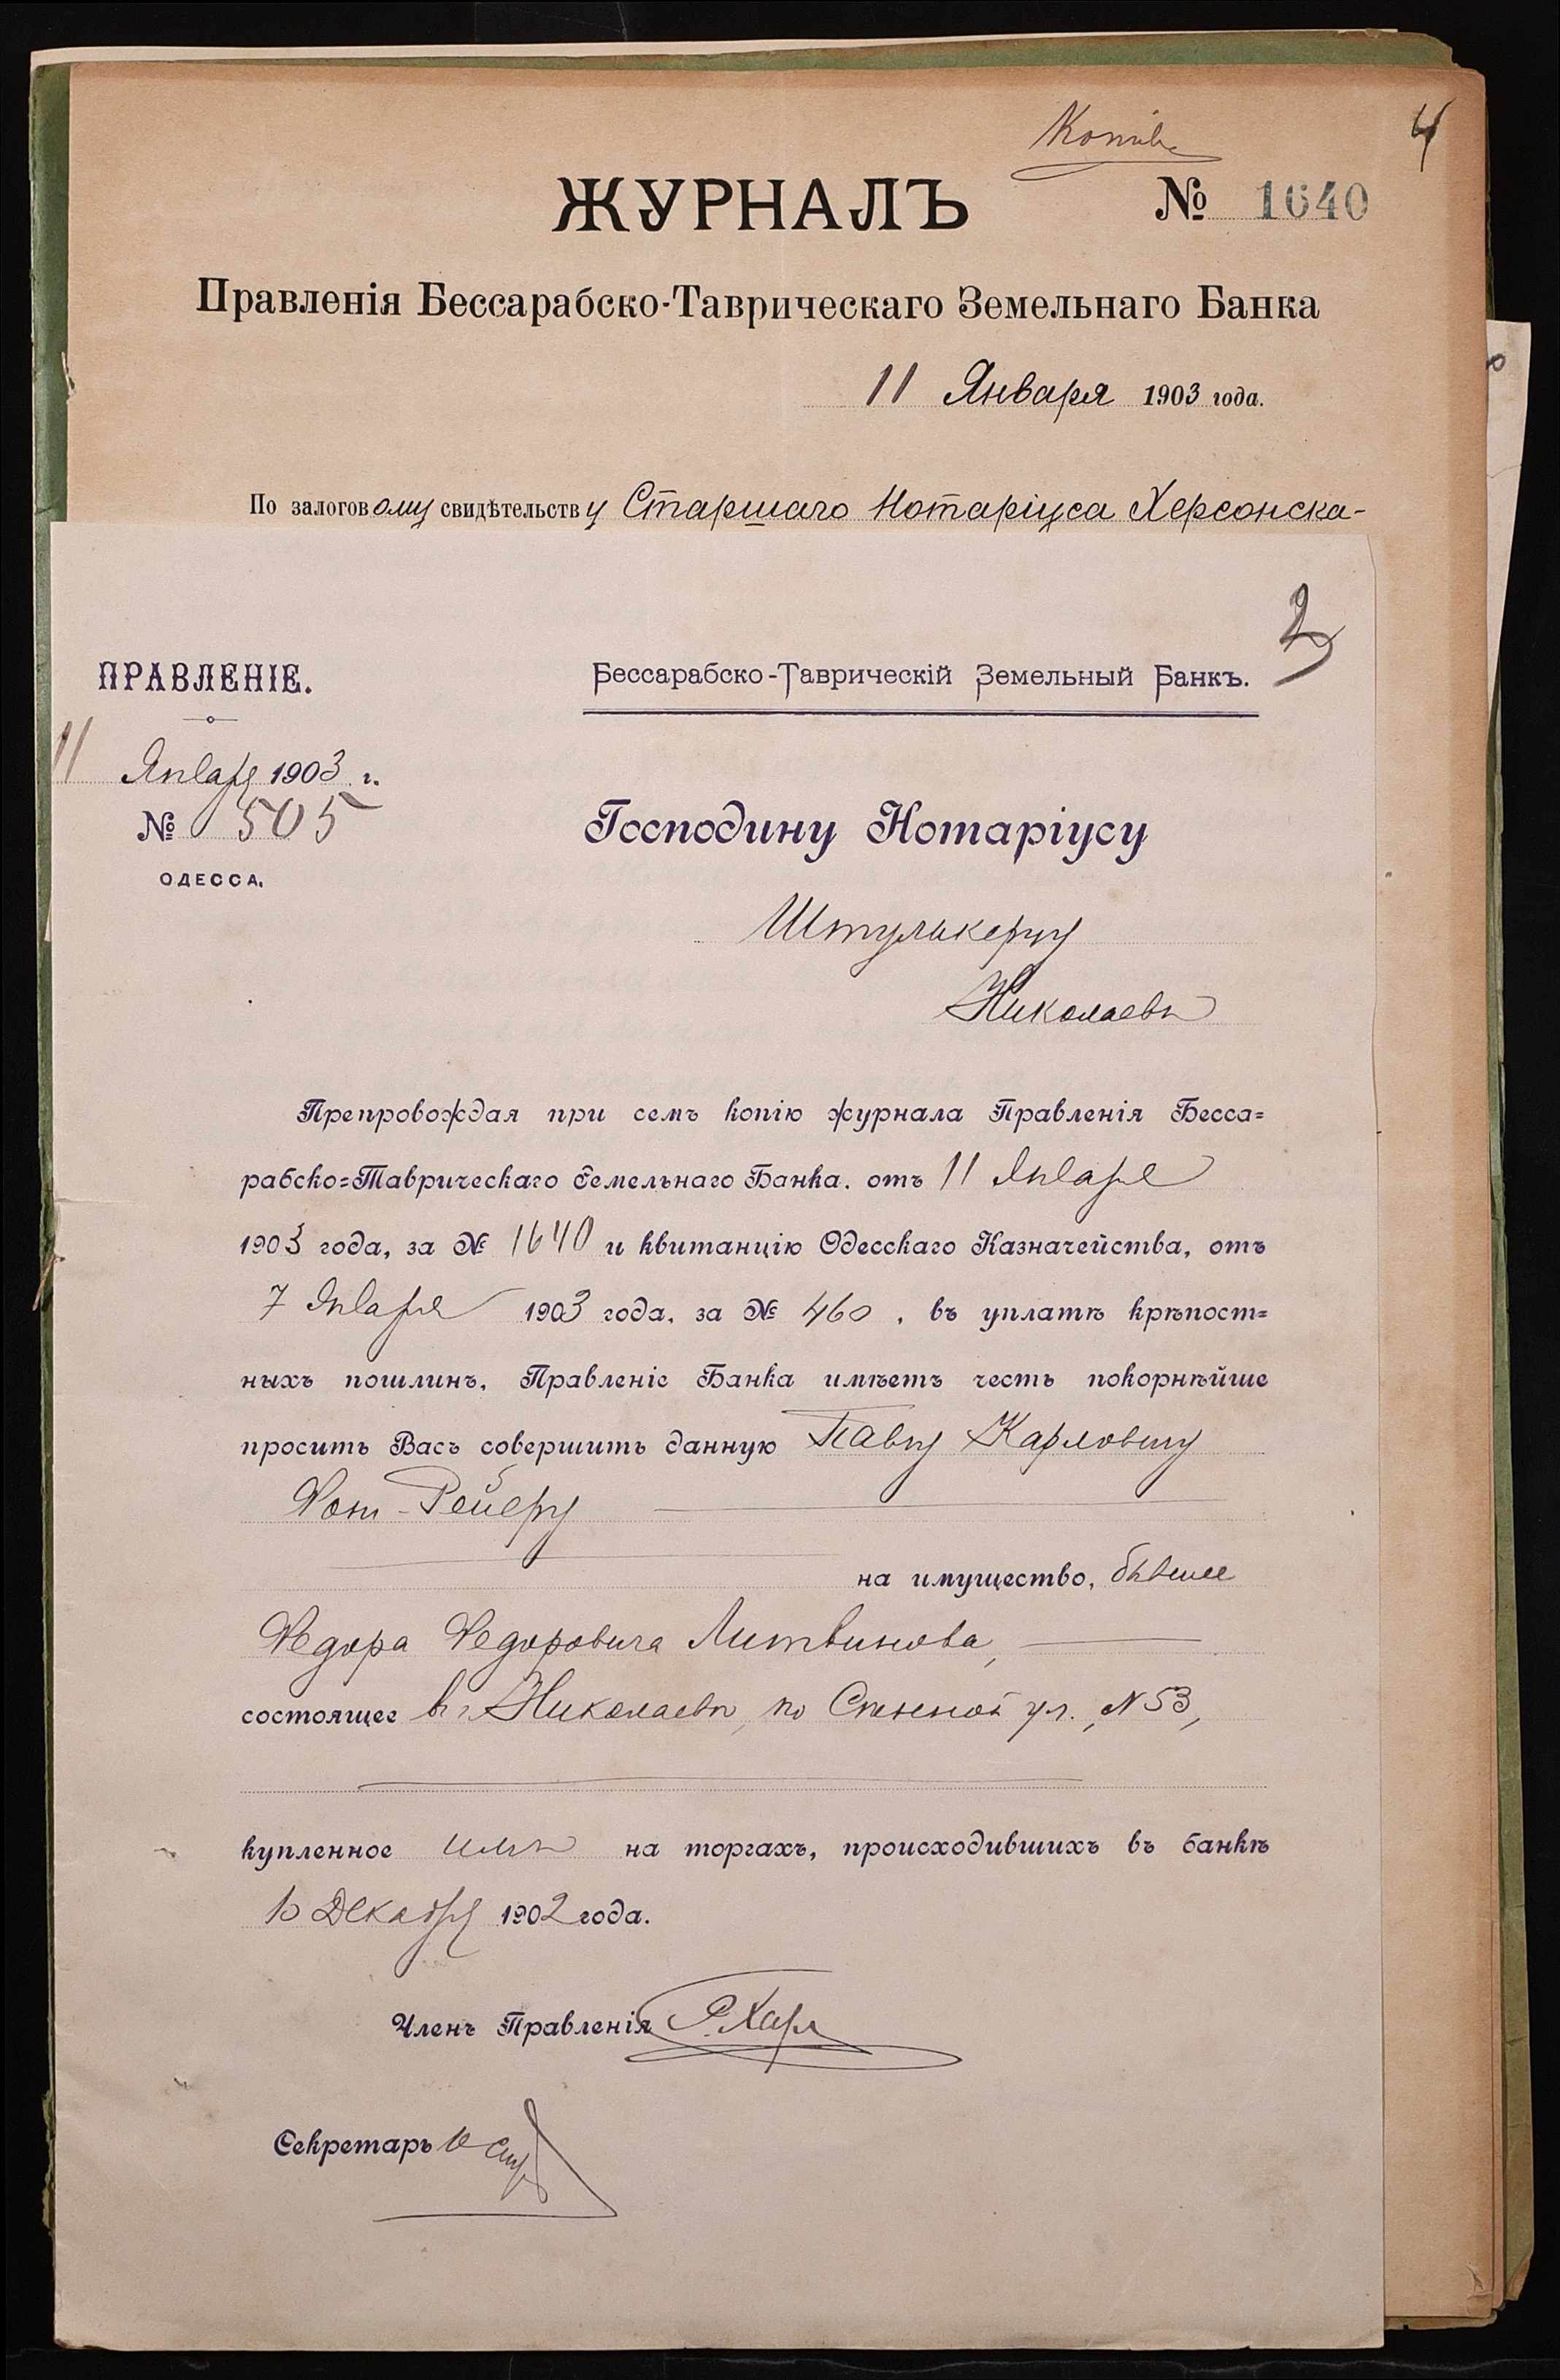 Копія
4
ЖУРНАЛЪ
№ 1640
Правленія Бессарабско-Таврическаго Земельнаго Банка
11 Января 1903 года.
По залоговому свидѣтельству Старшаго Нотаріуса Херсонска-
2
ПРАВЛЕНІЕ.
11 Января 1903 г.
№ 505
ОДЕССА.
Бессарабско-Таврическій Земельный Банкъ.
Господину Нотаріусу
Штулькерцу
Николаевъ
Препровождая при семъ копію журнала Правленія Бесса=
рабско=Таврическаго Земельнаго Банка. отъ 11 Января
1903 года, за № 1640 и квитанцію Одесскаго Казначейства, отъ
7 Января 1903 года, за № 460, въ уплатѣ крѣпост=
ныхъ пошлинъ, Правленіе Банка имѣетъ честь покорнѣйше
просить Васъ совершить данную Павлу Карловичу
Фон-Рейеру
на имущество, бывшее
Федора Федоровича Литвинова,
состоящее въ г. Николаевѣ, по Спасской ул., № 53,
купленное имъ на торгахъ, происходившихъ въ банкѣ
10 Декабря 1902 года.
Членъ Правленія
Секретарь